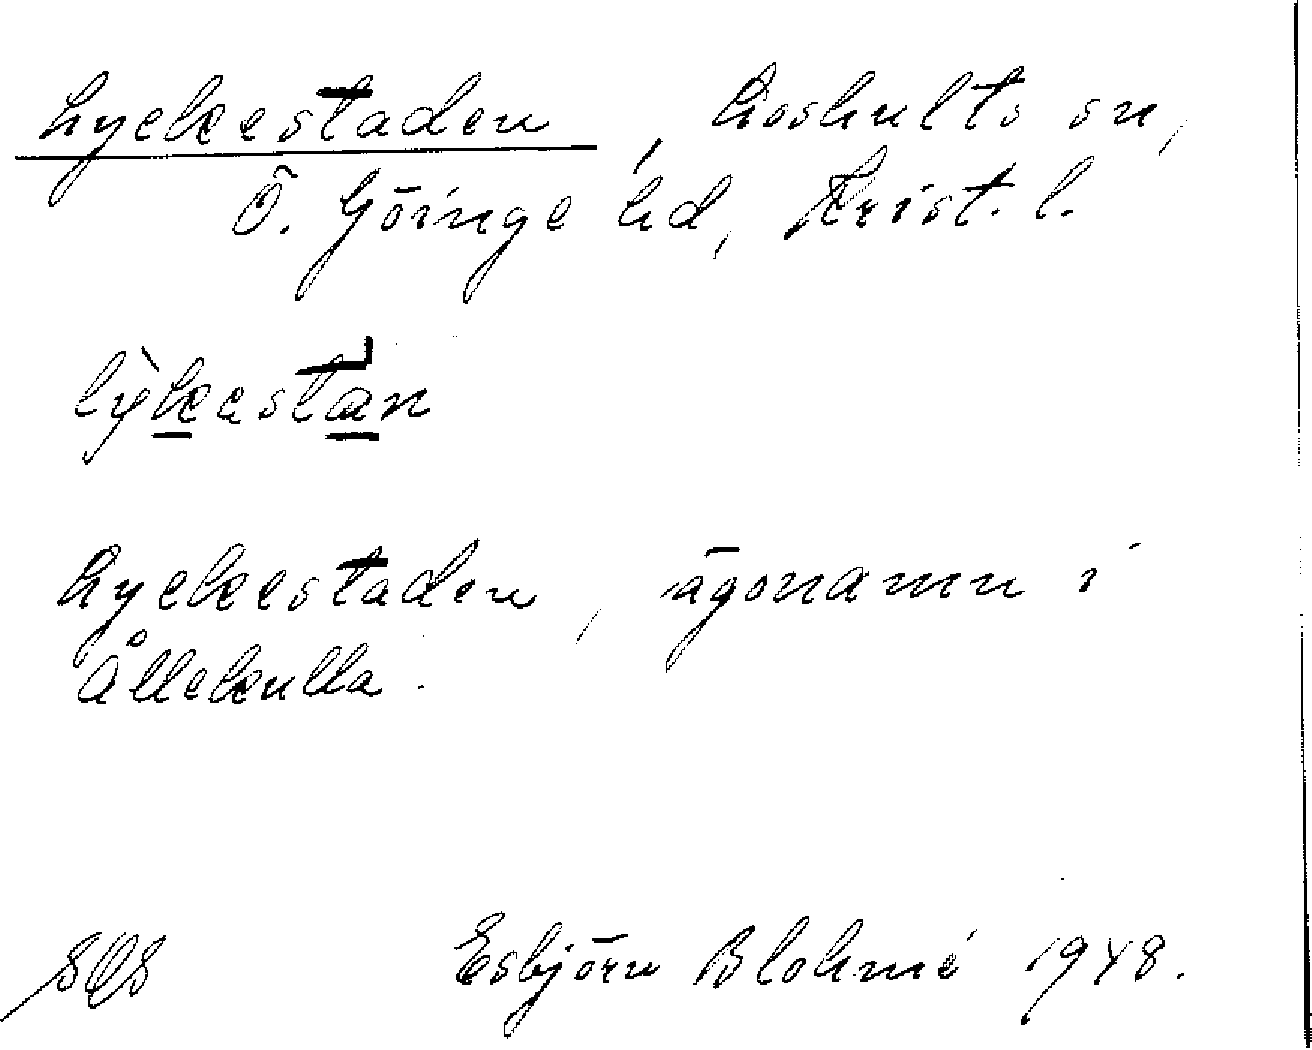 Lyckestaden, Loshults sn,
Ö. Göinge hd, Krist. l.
lỳkestan
Lyckestaden, ägonamn i
Ållekulla.
Esbjörn Blohmé 1948.